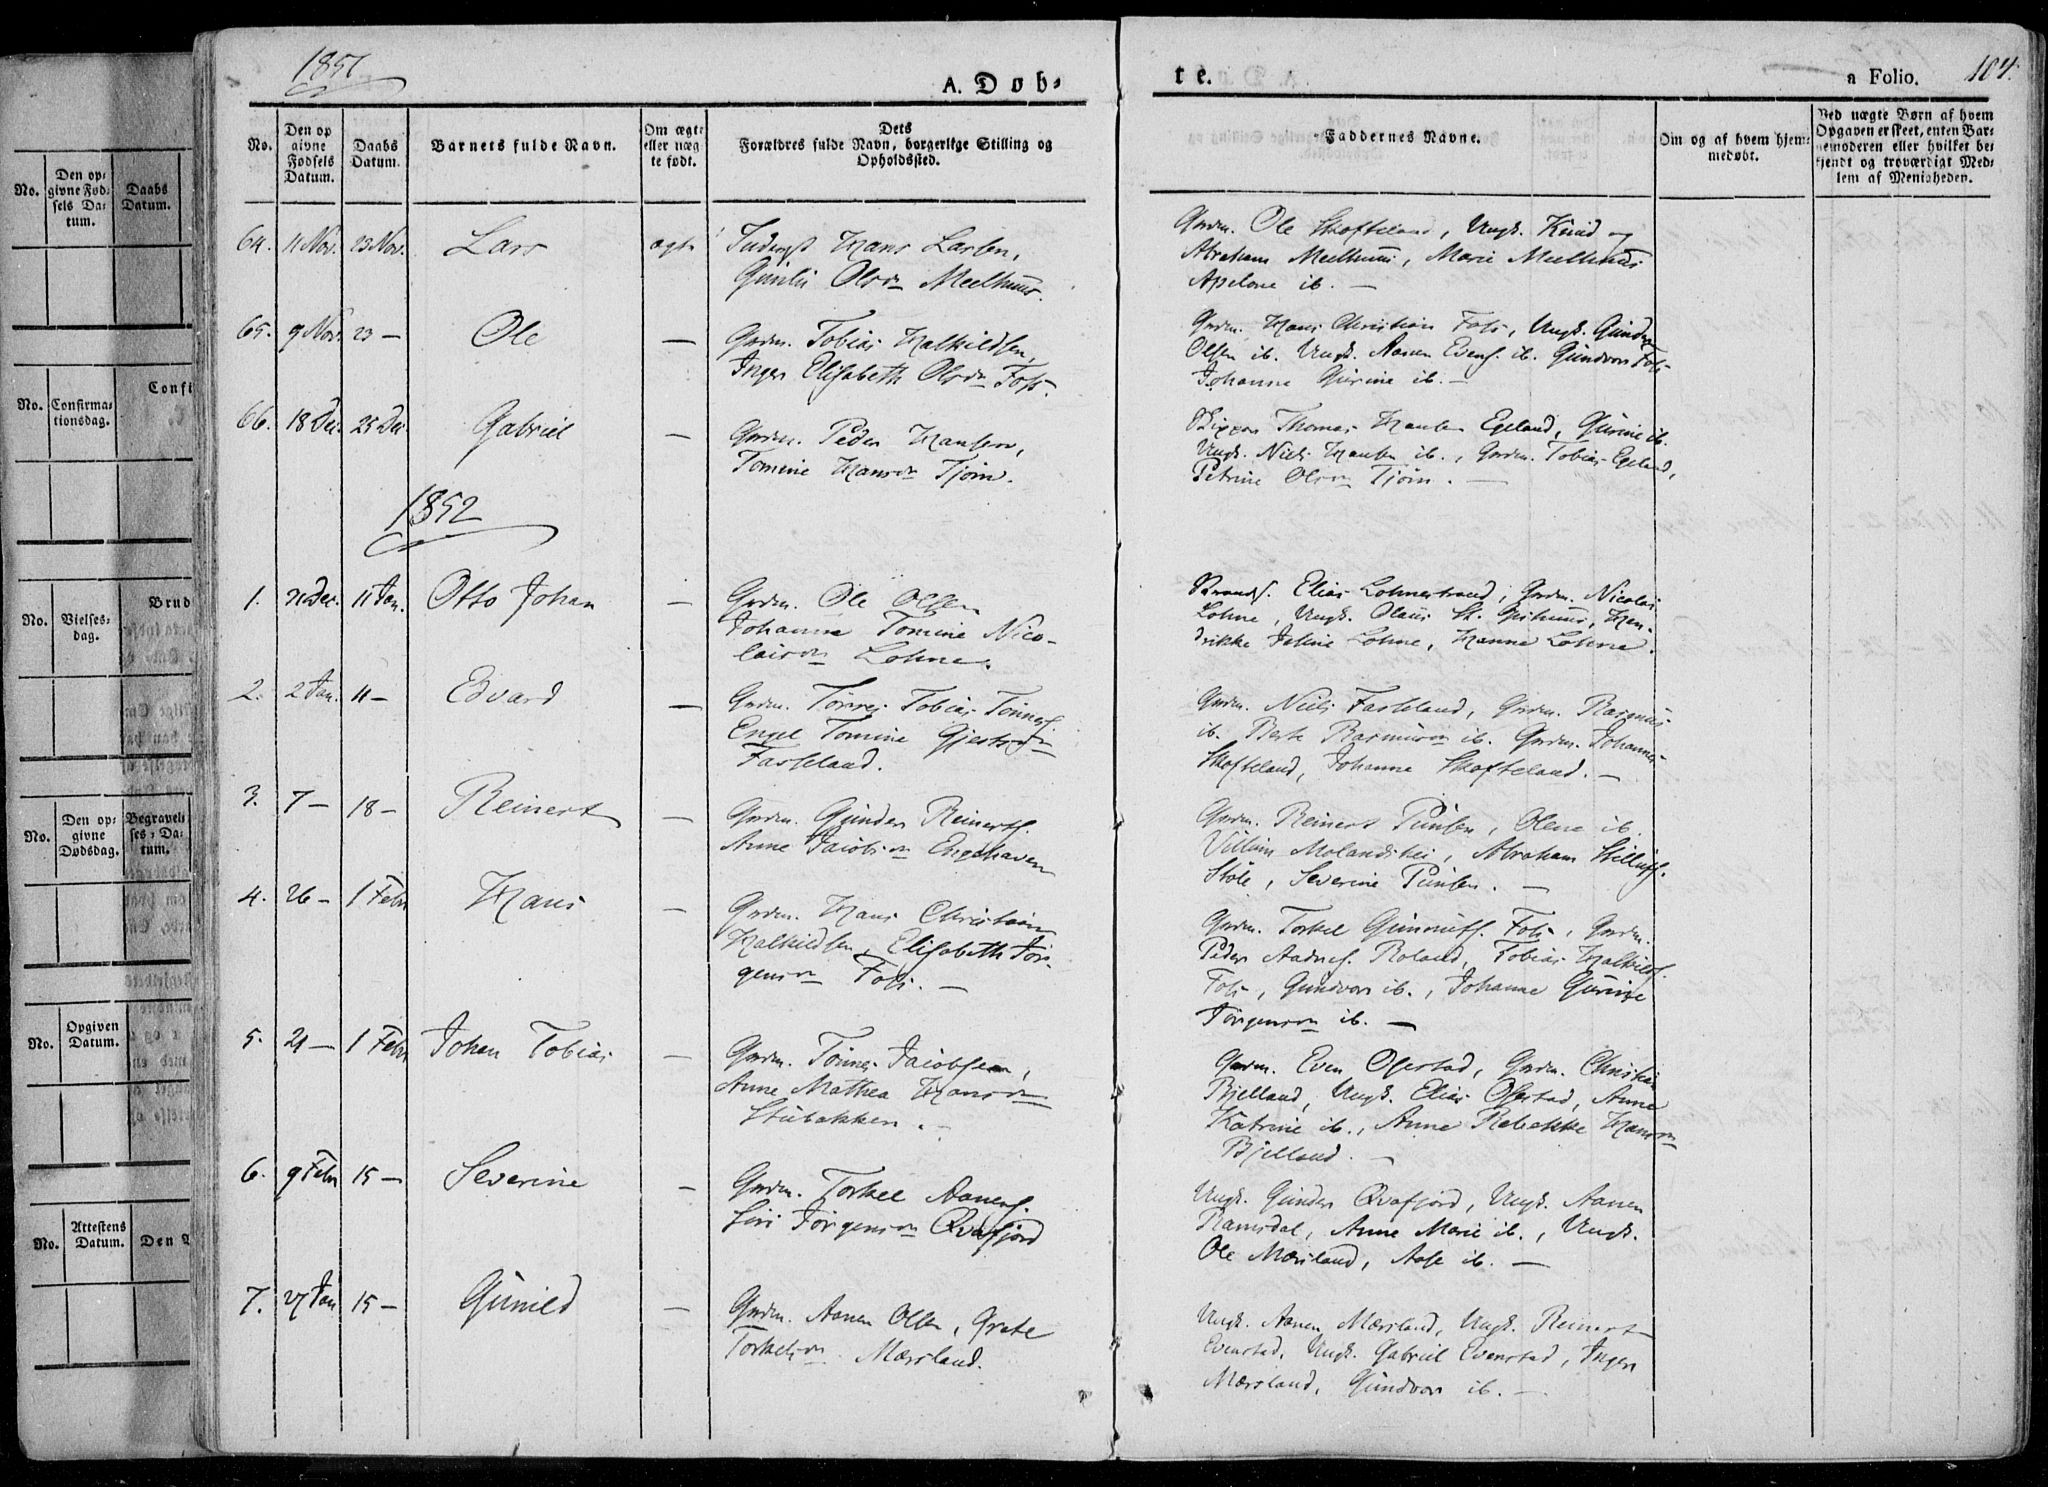 1851
A. Døb-
te.
a Folio.
104.
No.
Den op
givne
Fødsels
Datum.
Daabs
Datum.
Barnets fulde Navn.
Om ægte
eller uæg
te født.
Dets
Forældres fulde Navn, borgerlige Stilling og
Opholdssted.
Faddernes Navne.
Om og af hvem hjem-
medøbt.
Ved uægte Børn af hvem
Opgaven er skeet, enten Bar-
nemoderen eller hvilket be-
kjendt og troværdigt Med-
lem af Menigheden.
64. 11 Nov. 23 Nov. Lars ægte Hans Larsen,
Gunild Olsdn Meelhuus.
Grdm. Ole Skofteland, Ungk. Knud og
Abraham Meelhuus, Marie Meelhuus
ib. —
65. 9 Nov. 23 — Ole — Grdm. Tobias Halkildsen,
Inger Elisabeth Olsdn Foss.
Grdm. Hans Christian Foss, Ungk. Gunder
Olsen ib. Ungk. Aanen Evens. ib. Gundvor Foss
Johanne Gurine ib. —
66. 18 Dec. 25 Dec. Gabriel — Grdm. Peder Hansen,
Tomine Hansdn Tjøm.
Skipper Thomas Hansen Egeland, Gurine ib.
Ungk. Niels Hansen ib., Grdm. Tobias Egeland,
Petrine Olsdn Tjøm. —
1852
1. 21 Dec. 11 Jan. Otto Johan — Grdm. Ole Olsen
Johanne Tomine Nico-
laisdn Lohne.
Elias Lohnestrand, Grdm. Nicolai
Lohne, Ungk. Olaus Hen-
drikke Lohne, Hanne Lohne.
2. 2 Jan. 11 — Edvard — Grdm. Tønnes Tobias Tønnes.
Engel Tomine Gjertsdn
Fasseland.
Grdm. Niels Fasseland, Grdm. Rasmus
ib. Berte Rasmusdn ib. Grdm. Johannes
Skofteland, Johanne Skofteland. —
3. 7 — 18 — Reinert — Grdm. Gunder Reinerts.
Anne Jacobsdn Engehaven
Grdm. Reinert Olene ib.
Villum Abraham
Severine
4. 26 — 1 Febr. Hans — Grdm. Hans Christian
Halkildsen, Elisabeth Jør-
gensdn Foss. —
Grdm. Torkel Foss, Grdm.
Peder Roland, Tobias Halkilds.
Foss, Gundvor ib., Johanne Gurine
Jørgensdn ib. —
5. 21 — 1 Febr. Johan Tobias — Grdm. Tønnes Jacobsen,
Anne Mathea Hansdn
Stubakken. —
Grdm. Even Ofestad, Grdm. Christian
Bjelland, Ungk. Elias Ofestad, Anne
Katrine ib., Anne Rebekke Hansdn
Bjelland. —
6. 9 Febr. 15 — Severine — Grdm. Torkel Aanens.
Siri Jørgensdn Qvafjord
Ungk. Gunder Qvafjord, Ungk. Aanen
Ramsdal, Anne Marie ib., Ungk.
Ole Mærsland, Aase ib. —
7. 27 Jan 15 — Gunild — Grdm. Aanen Olsen, Grete
Torkelsdn Mærsland.
Ungk. Aanen Mærsland, Ungk. Reinert
Evenstad, Ungk. Gabriel Evenstad, Inger
Mærsland, Gundvor ib. —
No.
Den op-
givne Fød-
sels Da-
tum.
Daabs
Datum.
Confi
No.
Confirma-
tionsdag.
Brud
No.
Vielses-
dag.
No.
Den op-
givne
Dødsdag.
Begravel-
ses-Da-
tum.
No.
Opgiven
Datum.
No.
Attestens
Datum.